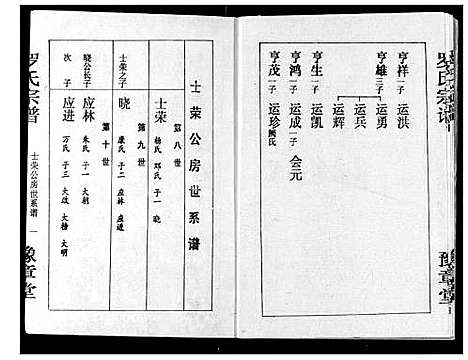 罗氏宗谱
豫章堂
亨祥 一子 运洪
亨雄 三子 运勇
运兵
运辉
亨生 一子 运凯
亨鸿 一子 运成 一子 会元
亨茂 一子 运珍 阙氏
士荣公房世系谱
第八世
士荣 杨氏 邓氏 子一 晓
第九世
士荣之子 晓 康氏 子二 应林 应进
第十世
晓公长子 应林 朱氏 子一 大朝
次子 应进 万氏 子三 大政 大榜 大明
罗氏宗谱
士荣公房世系谱 一
豫章堂